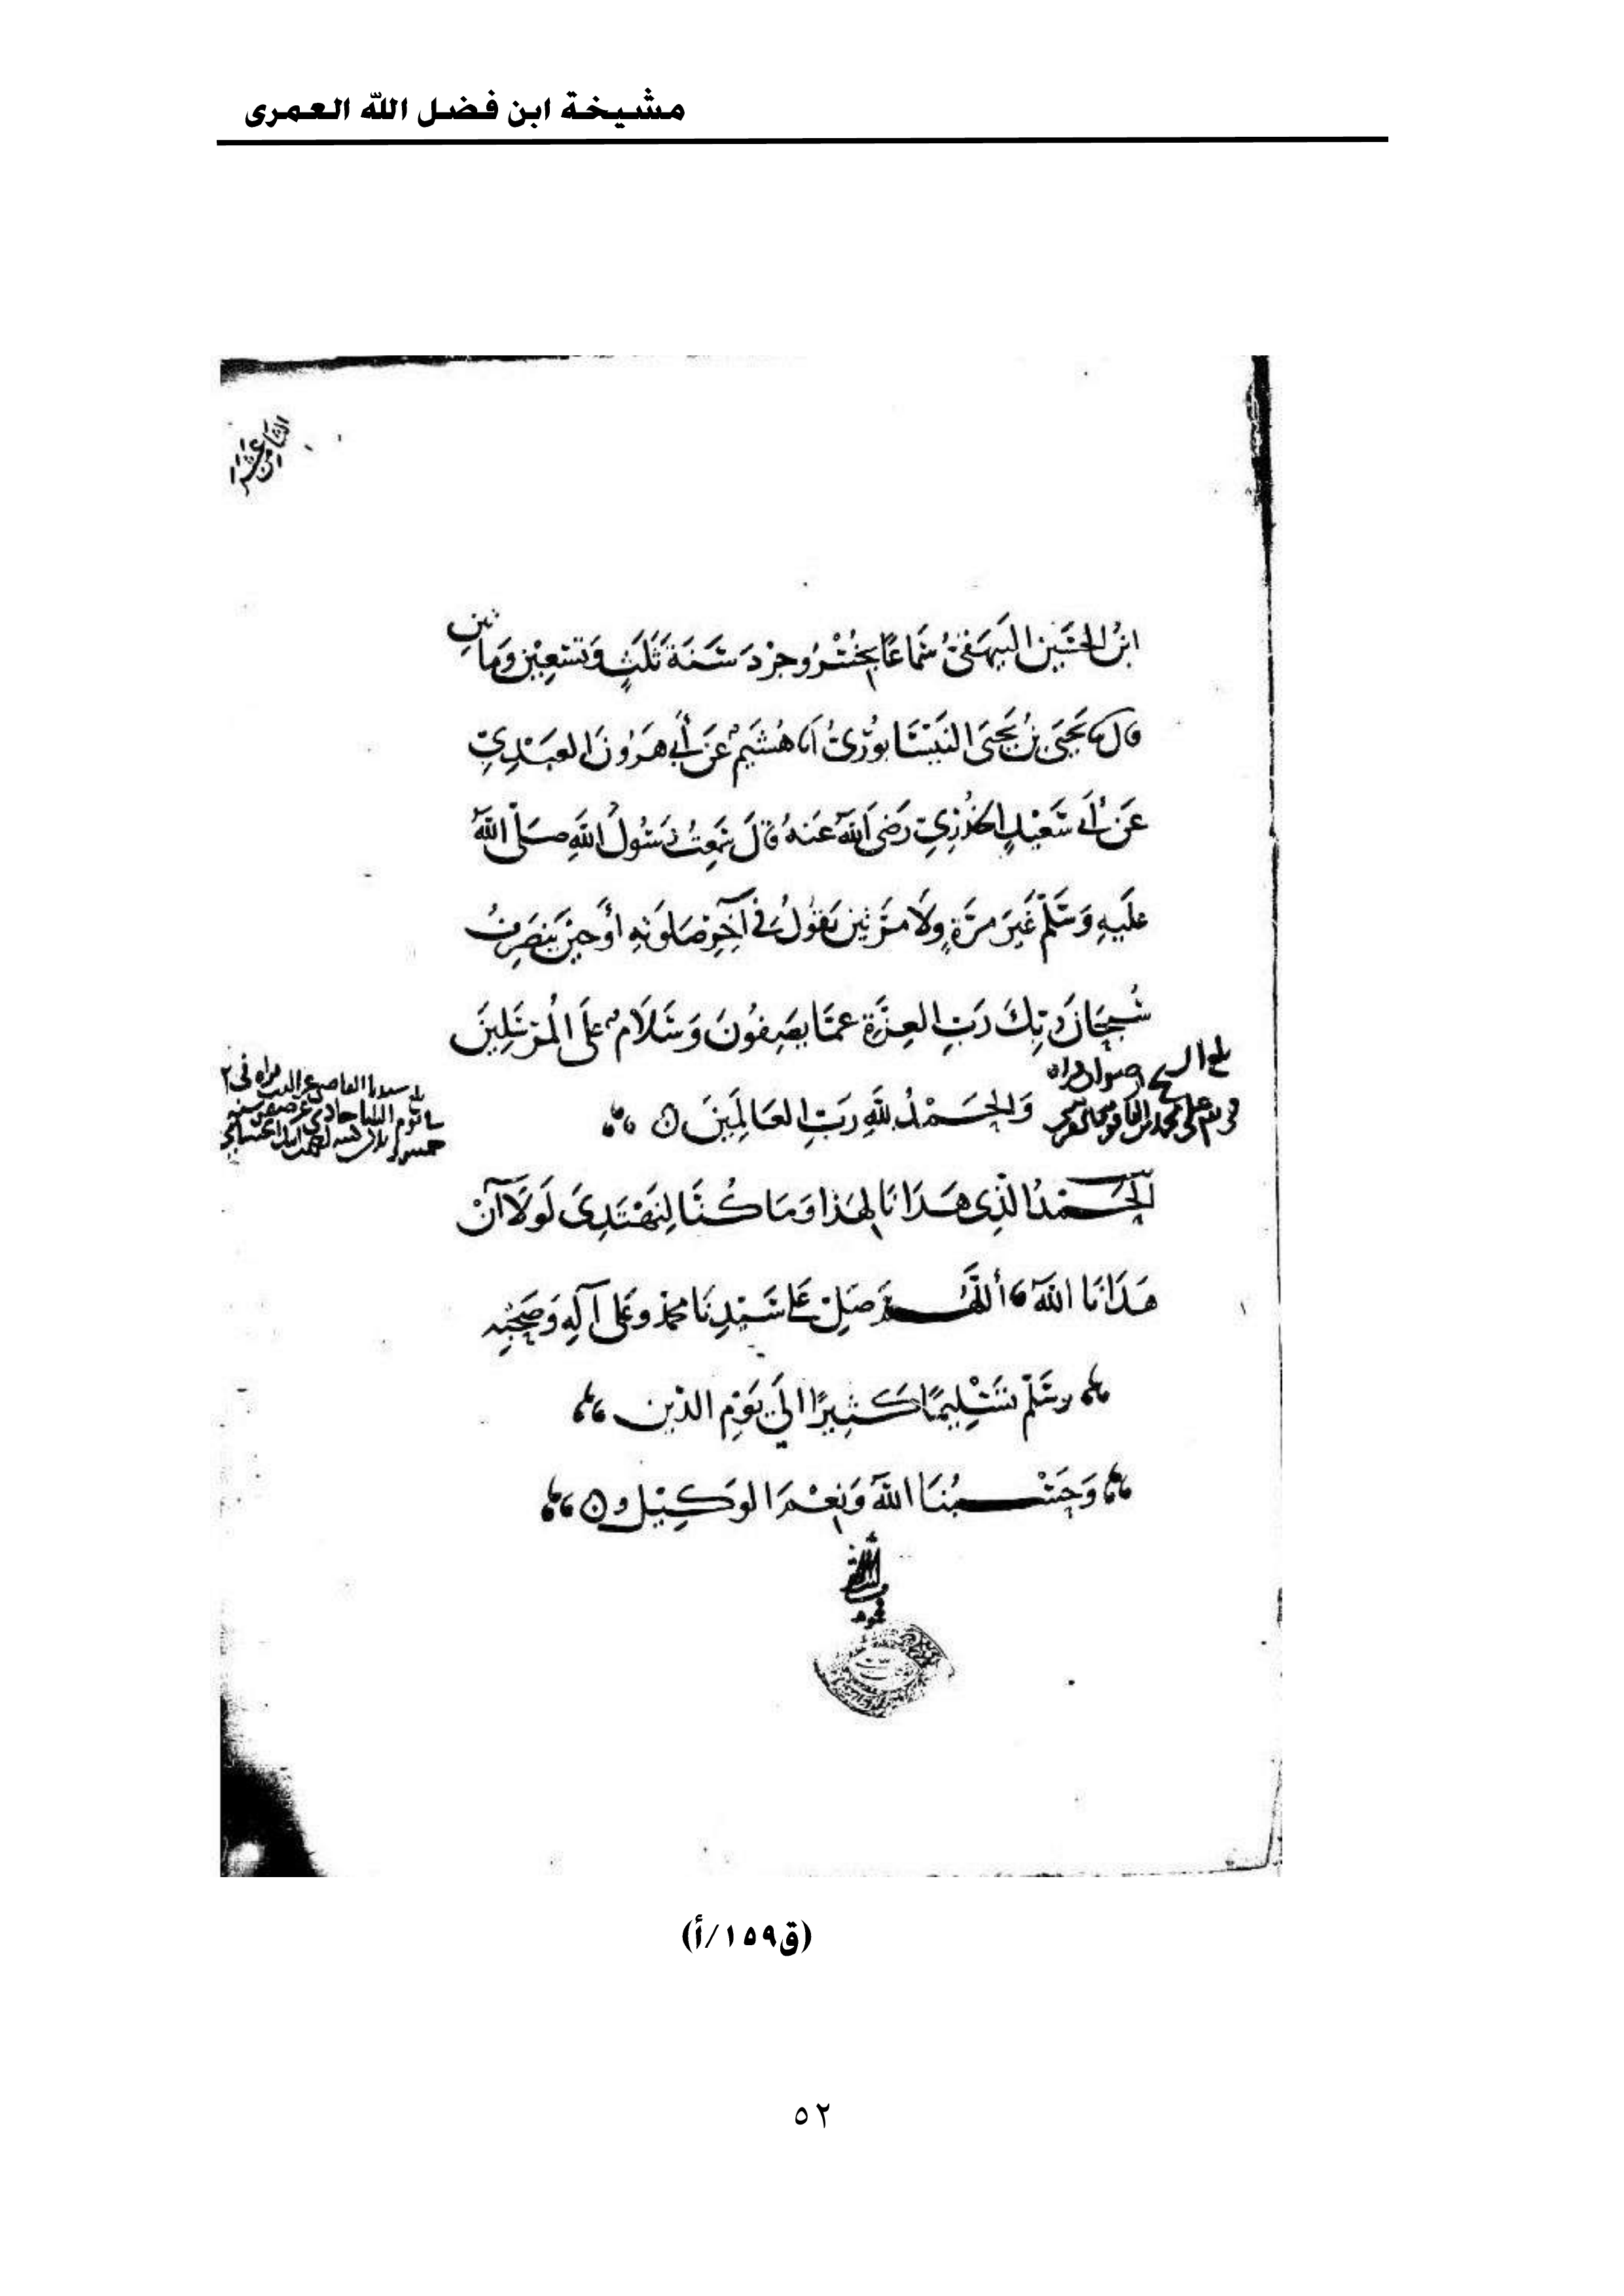 مشيخة ابن فضل الله العمرى
الثامن عشر
ابْنُ الحُسَيْنِ البَيْهَقِيُّ سَمَاعًا بِخُسْرُوجِرْدَ سَنَةَ ثَلَثٍ وَتِسْعِيْنَ وَمِائَتَيْنِ
قَالَ ثنا يَحْيَى بْنُ يَحْيَى النَّيْسَابُوْرِيُّ أنا هُشَيْمٌ عَنْ أَبِي هَرُونَ العَبْدِيِّ
عَنْ أَبِي سَعْيدٍ الخُدْرِيِّ رَضِيَ اللهُ عَنْهُ قَالَ سَمِعْتُ رَسُولَ اللهِ صَلَّى اللهُ
عَلَيهِ وَسَلَّمَ غَيرَ مَرَّةٍ وَلَا مَرَّتَيْنِ يَقُولُ فِي آخِرِ صَلَوتِهِ أَوْ حِيْنَ يَنْصَرِفُ
سُبْحَانَ رَبِّكَ رَبِّ العِزَّةِ عَمَّا يَصِفُونَ وَسَلَامٌ عَلَى المُرْسَلِينَ
وَالحَمْدُ للهِ رَبِّ العَالَمِيْنَ
الحَمْدُ الَّذِي هَدَانَا لِهَذَا وَمَا كُنَّا لِنَهْتَدِيَ لَوْلَا أَنْ
هَدَانَا اللهُ أللَّهُمَّ صَلِّ عَلَى سَيِّدِنَا مُحمَّدٍ وَعَلَى آلِهِ وَصَحْبِهِ
وَسَلَّمْ تَسْلِيمًا كَثِيرًا إِلَى يَوْمِ الدِّينِ
وَحَسْبُنَا اللهُ وَنِعْمَ الوَكِيْلُ
(ق١٥٩/أ)
٥٢